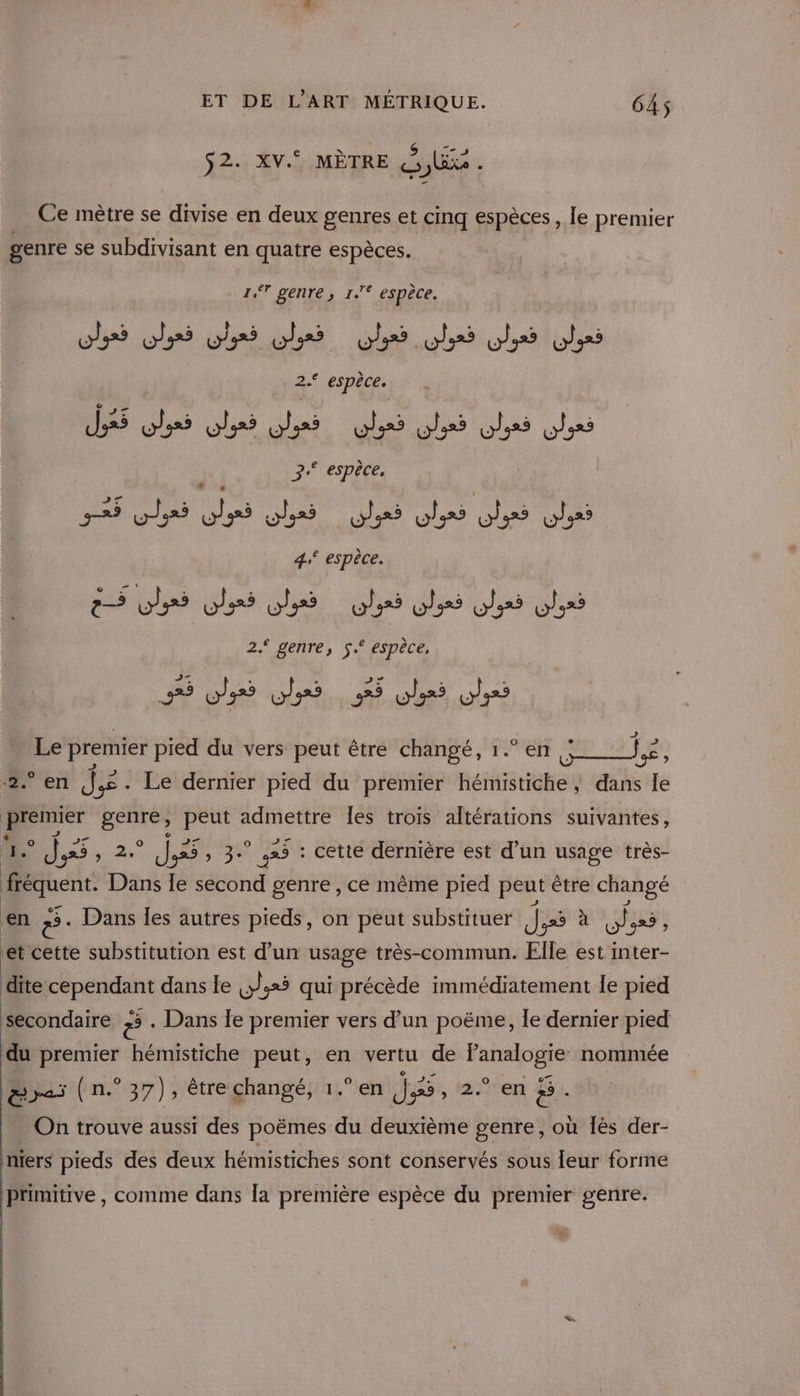 ET DE L'ART MÉTRIQUE. 645
§2. XV.e MÈTRE مُتَقَارِبٌ .
Ce mètre se divise en deux genres et cinq espèces, le premier
genre se subdivisant en quatre espèces.
1.er genre, 1.re espèce.
فعولن فعولن فعولن فعولن فعولن فعولن فعولن فعولن
2.e espèce.
فعولن فعولن فعولن فعولن فعولن فعولن فعولن فَعُولْ
3.e espèce.
فعولن فعولن فعولن فعولن فعولن فعولن فعولن فَعُو
4.e espèce.
فعولن فعولن فعولن فعولن فعولن فعولن فعولن فَعْ
2.e genre, 5.e espèce.
فعولن فعولن فَعُو فعولن فعولن فَعُو
Le premier pied du vers peut être changé, 1.° en عُولُنْ,
2.° en عُولُ. Le dernier pied du premier hémistiche, dans le
premier genre, peut admettre les trois altérations suivantes,
1.° فَعُولُ, 2.° فَعُولْ, 3.° فَعُو : cette dernière est d'un usage très-
fréquent. Dans le second genre, ce même pied peut être changé
en فَعْ. Dans les autres pieds, on peut substituer فعولُ à فعولن,
et cette substitution est d'un usage très-commun. Elle est inter-
dite cependant dans le فعولن qui précède immédiatement le pied
secondaire فَعْ. Dans le premier vers d'un poëme, le dernier pied
du premier hémistiche peut, en vertu de l'analogie nommée
تصريع (n.° 37), être changé, 1.° en فَعُولْ, 2.° en فَعْ.
On trouve aussi des poëmes du deuxième genre, où les der-
niers pieds des deux hémistiches sont conservés sous leur forme
primitive, comme dans la première espèce du premier genre.